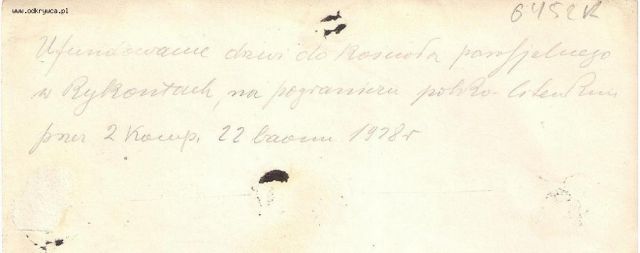 www.odkrywca.pl
6452R
Ufundowanie drzwi do Kościoła parafjalnego
w Rykontach, na pograniczu polsko-litewskim
przez 2 Komp. 22 baonu 1928 r